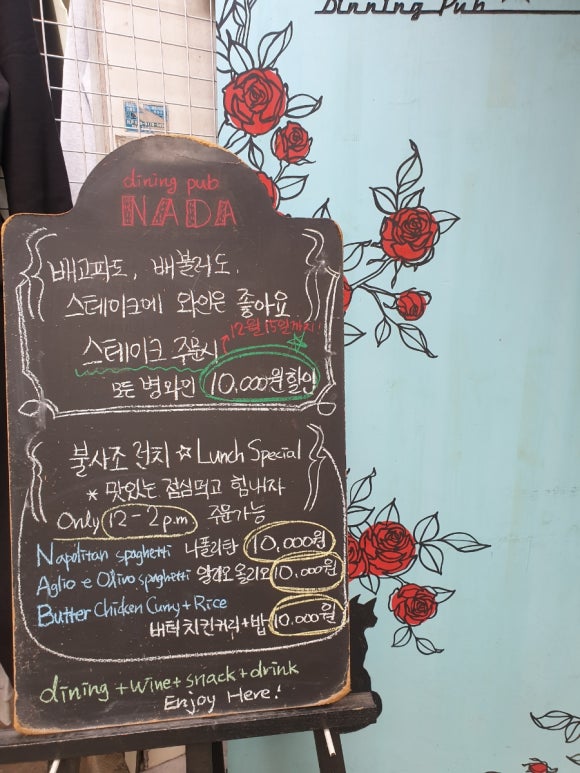 Dinning Pub
dining pub
NADA
배고파도, 배불러도.
스테이크에 와인은 좋아요
12월 15일까지!
스테이크 주문시
모든 병와인 10,000원 할인
불사조 런치 ☆ Lunch Special
* 맛있는 점심먹고 힘내자
Only 12-2 p.m 주문가능
Napolitan spaghetti 나폴리탄 10,000원
Aglio e Olivo spaghetti 알리오 올리오 10,000원
Butter Chicken Curry + Rice
버터 치킨커리 + 밥 10,000원
dining + wine + snack + drink
Enjoy Here!